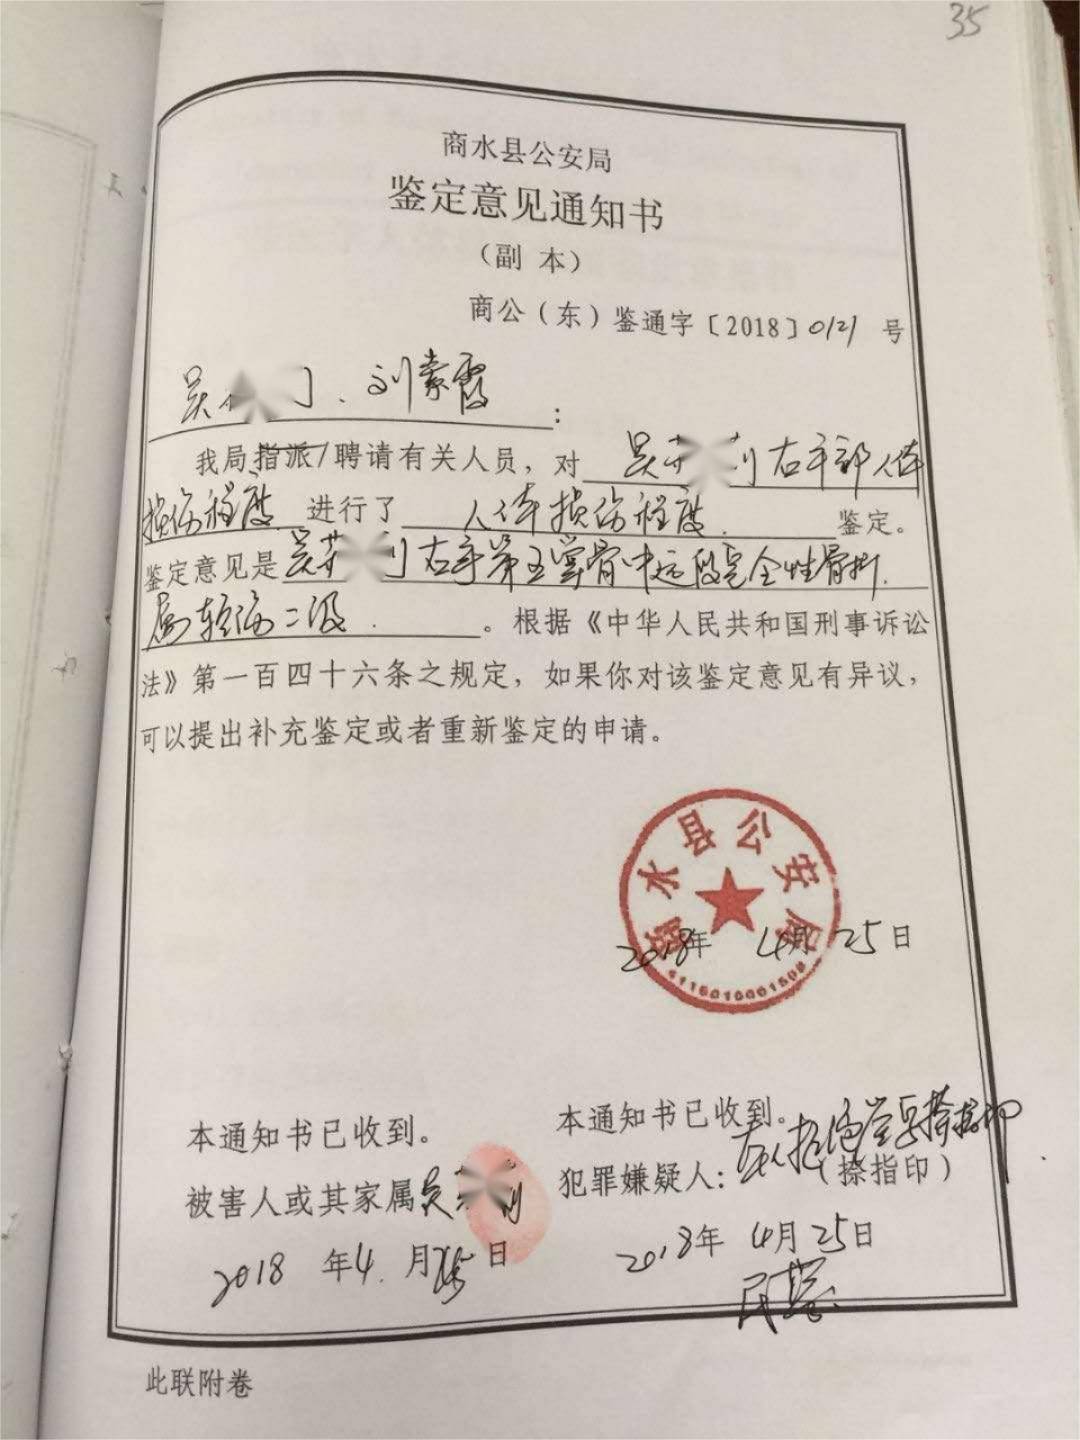 35
商水县公安局
鉴定意见通知书
（副 本）
商公（东）鉴通字〔2018〕0121 号
吴 、刘素霞 ：
我局指派/聘请有关人员，对 吴 利右手部人体
损伤程度 进行了 人体损伤程度 鉴定。
鉴定意见是 吴 利右手第五掌骨中远段完全性骨折.
属轻伤二级. 。根据《中华人民共和国刑事诉讼
法》第一百四十六条之规定，如果你对该鉴定意见有异议，
可以提出补充鉴定或者重新鉴定的申请。
商水县公安局
2018年 4月 25日
本通知书已收到。
被害人或其家属 吴
2018 年 4. 月 日
本通知书已收到。
本人拒绝签字捺指印.
犯罪嫌疑人： （捺指印）
2018年 4月25日
此联附卷